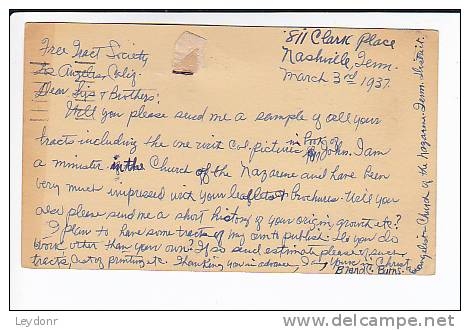 811 Clark Place
Nashville, Tenn.
March 3rd 1937.
Free Tract Society
Los Angeles, Calif.
Dear Sirs & Brothers:
Will you please send me a sample of all your
tracts including the one visit Col. pictures in Book of John. I am
a minister in the Church of the Nazarene and have been
very much impressed with your leaflets & Brochures. Will you
also please send me a short history of your origin, growth etc?
I plan to have some tracts of my own to publish. Do you do
work other than your own? If so send estimate please of such
tracts, as to printing etc. Thanking you in advance, I am, yours in Christ
C. Burns.
Evangelist - Church of the Nazarene - Tenn. District.
Leydorr
delcampe.net